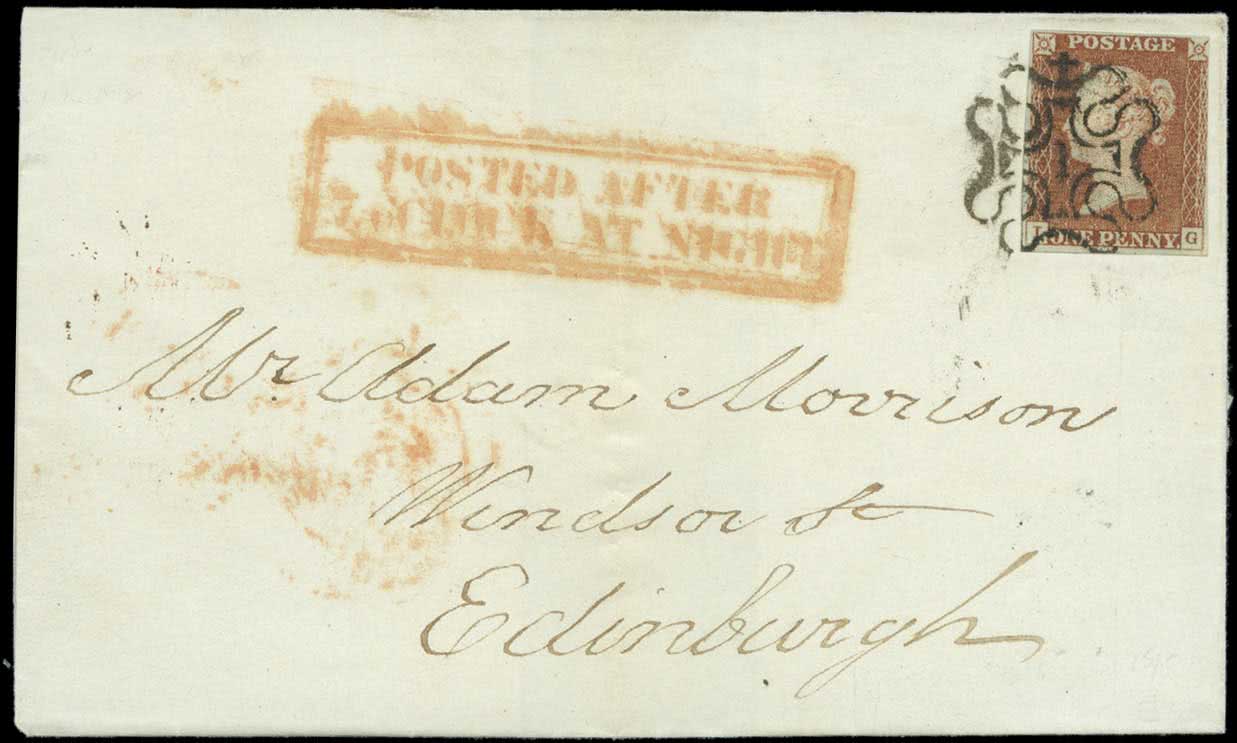 POSTAGE
POSTED AFTER
O'CLOCK AT NIGHT
ONE PENNY G
Mr Adam Morrison
Windsor St
Edinburgh